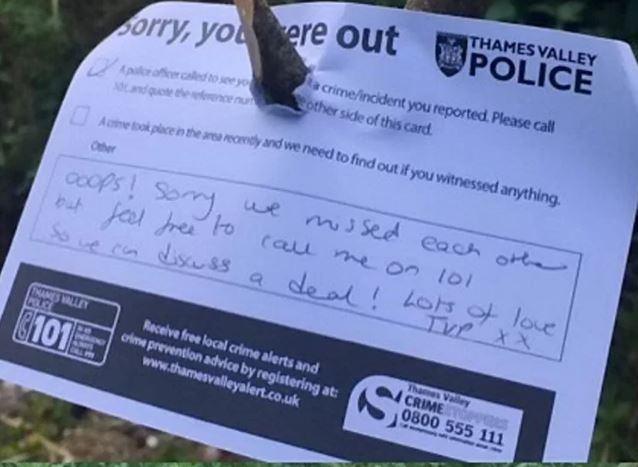 Sorry, you were out
THAMES VALLEY
POLICE
A police officer called to see you a crime/incident you reported. Please call
101, and quote the reference num other side of this card.
A crime took place in the area recently and we need to find out if you witnessed anything.
Other
ooops! Sorry we missed each other
but feel free to call me on 101
so we can discuss a deal! Lots of love
TVP XX
THAMES VALLEY
POLICE
101
IN AN
EMERGENCY
ALWAYS
CALL 999
Receive free local crime alerts and
crime prevention advice by registering at:
www.thamesvalleyalert.co.uk
Thames Valley
CRIMESTOPPERS
0800 555 111